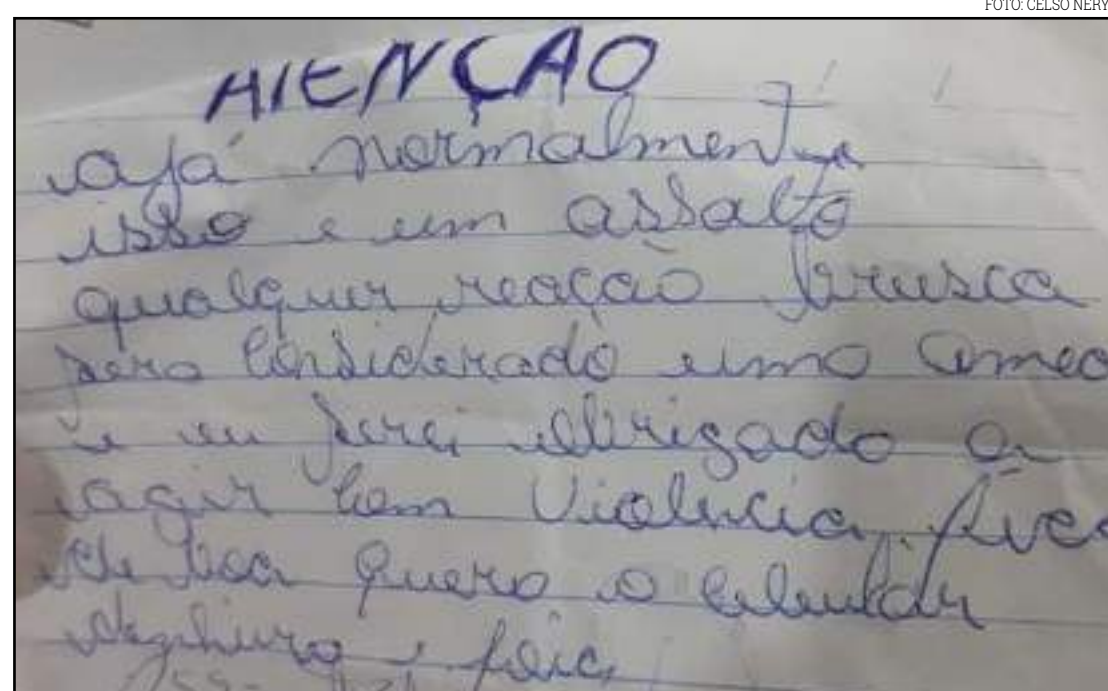 FOTO: CELSO NERY
ATENÇÃO
ajá normalmente
isso e um assalto
qualquer reação brusca
sera considerado uma ameac
e eu serei obrigado a
agir com Violência. fica
de boa quero o celular